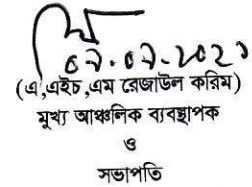 ০২.০২.২০২১
(এ,এইচ,এম রেজাউল করিম)
মুখ্য আঞ্চলিক ব্যবস্থাপক
ও
সভাপতি